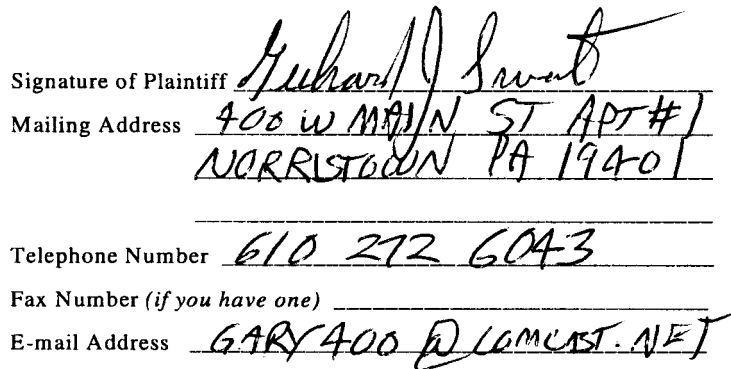 Signature of Plaintiff
Mailing Address 400 W MAIN ST APT #1
NORRISTOWN PA 19401
Telephone Number 610 272 6043
Fax Number (if you have one)
E-mail Address GARY400@COMCAST.NET